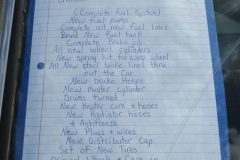 (Complete fuel System)
New fuel pump
Complete all new fuel lines
Brand New fuel tank
Complete Brake job
All new wheel cylinders
New spring kit for every wheel
All New steel brake lines thru
out the Car
New brake Hoses
New master cylinder
Drums turned
New Heater core & hoses
New Radiator hoses
& Antifreeze
New Plugs & wires
New Distributor Cap
Set of New Tires